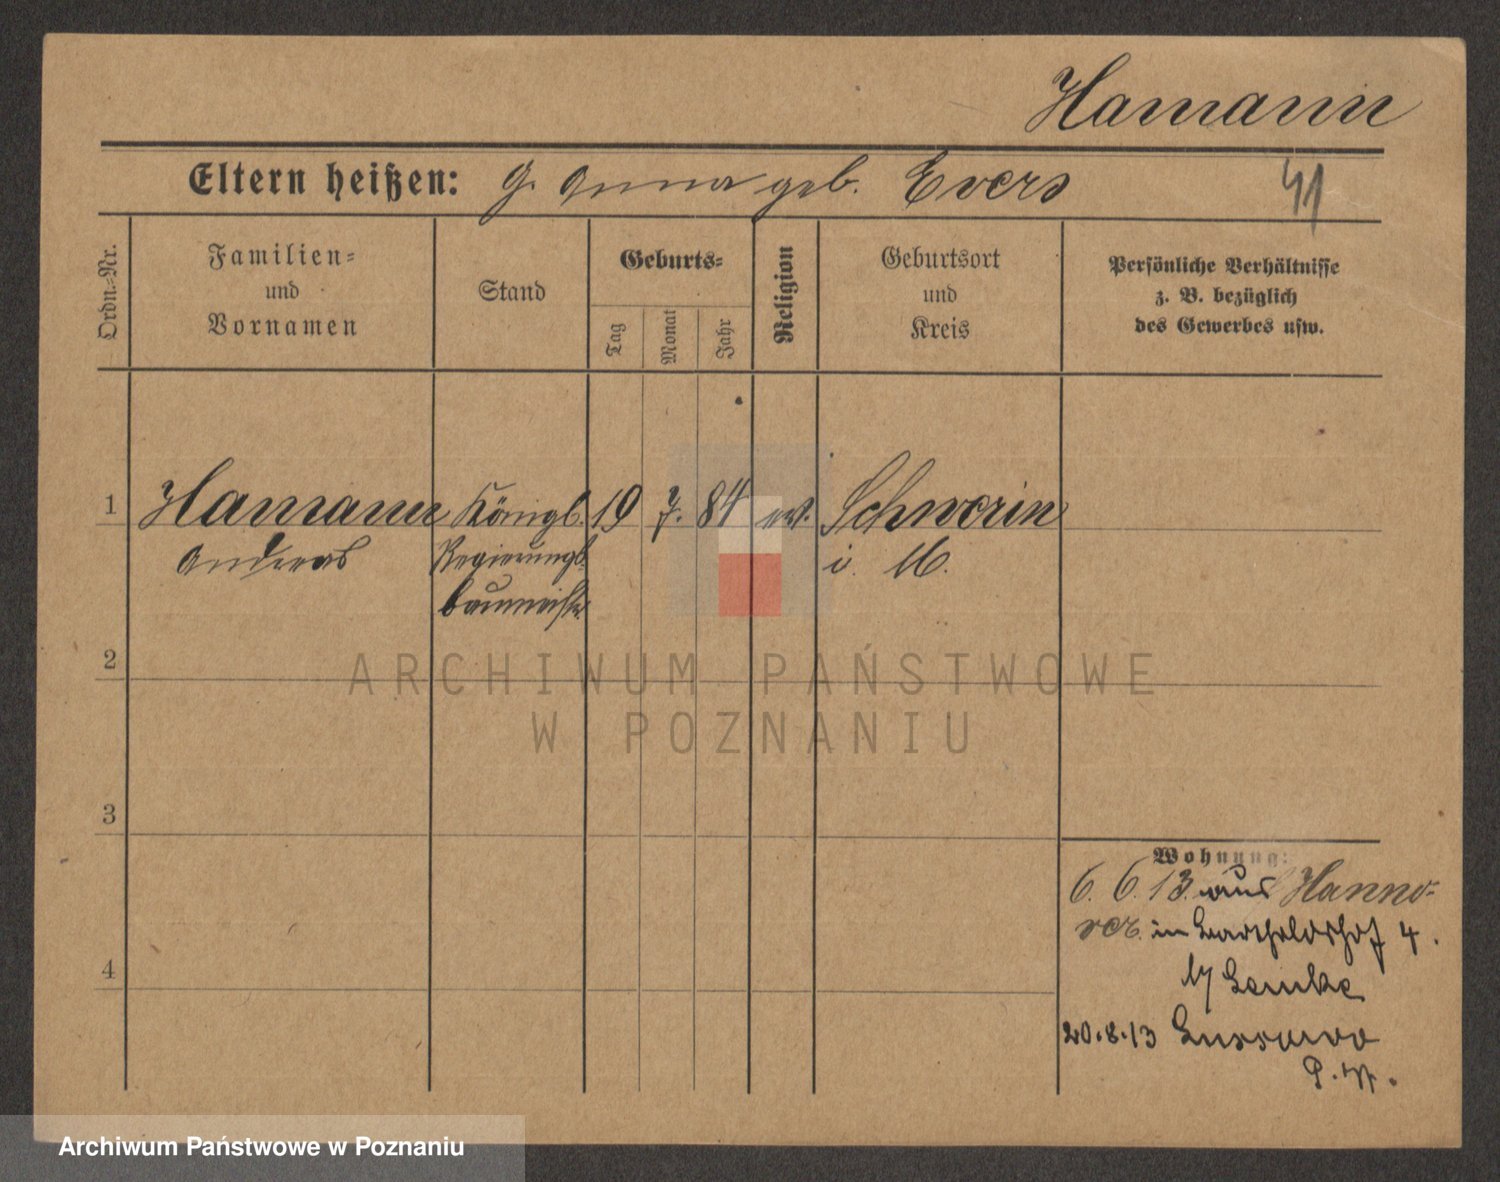 Hamann
Eltern heißen: G. Anna geb. Evers
41
Ordn.=Nr.
Familien=
und
Vornamen
Stand
Geburts=
Tag
Monat
Jahr
Religion
Geburtsort
und
Kreis
Persönliche Verhältnisse
z. B. bezüglich
des Gewerbes usw.
1 Hamann Königl. 19 7. 84 ev. Schwerin
Andreas Regierungs
baumeister i. M.
2
ARCHIWUM PAŃSTWOWE
W POZNANIU
3
Wohnung:
6. 6. 13. aus Hanno=
ver. in Bartholdshof 4.
b/ Lemke
4
20.8.13
Archiwum Państwowe w Poznaniu